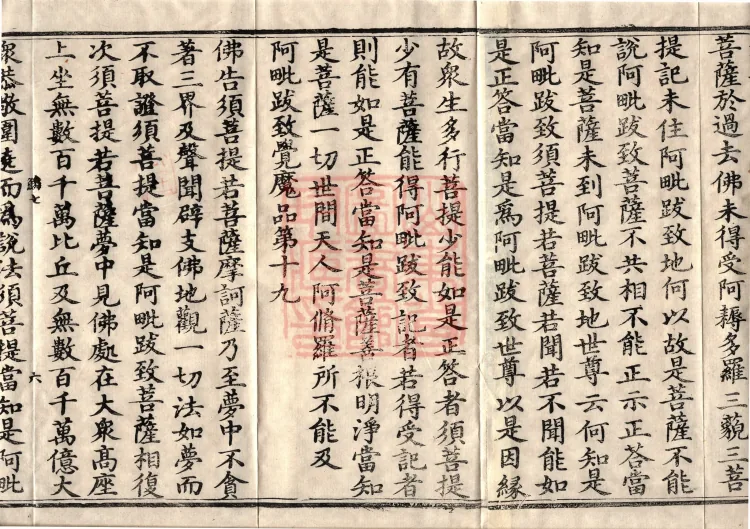 菩薩於過去佛未得受阿耨多羅三藐三菩
提記未住阿毗跋致地何以故是菩薩不能
說阿毗跋致菩薩不共相不能正示正荅當
知是菩薩未到阿毗跋致地世尊云何知是
阿毗跋致須菩提若菩薩若聞若不聞能如
是正荅當知是爲阿毗跋致世尊以是因緣
故衆生多行菩提少能如是正荅者須菩提
少有菩薩能得阿毗跋致記者若得受記者
則能如是正荅當知是菩薩善根明淨當知
是菩薩一切世間天人阿脩羅所不能及
阿毗跋致覺魔品第十九
佛告須菩提若菩薩摩訶薩乃至夢中不貪
著三界及聲聞辟支佛地觀一切法如夢而
不取證須菩提當知是阿毗跋致菩薩相復
次須菩提若菩薩夢中見佛處在大衆髙座
上坐無數百千萬比丘及無數百千萬億大
衆恭敬圍遶而爲說法須菩提當知是阿毗
六